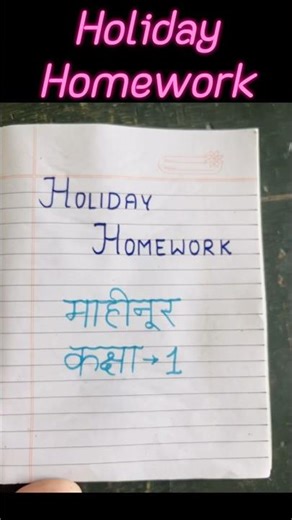 Holiday
Homework
HOLIDAY
HOMEWORK
माहीनूर
कक्षा→1